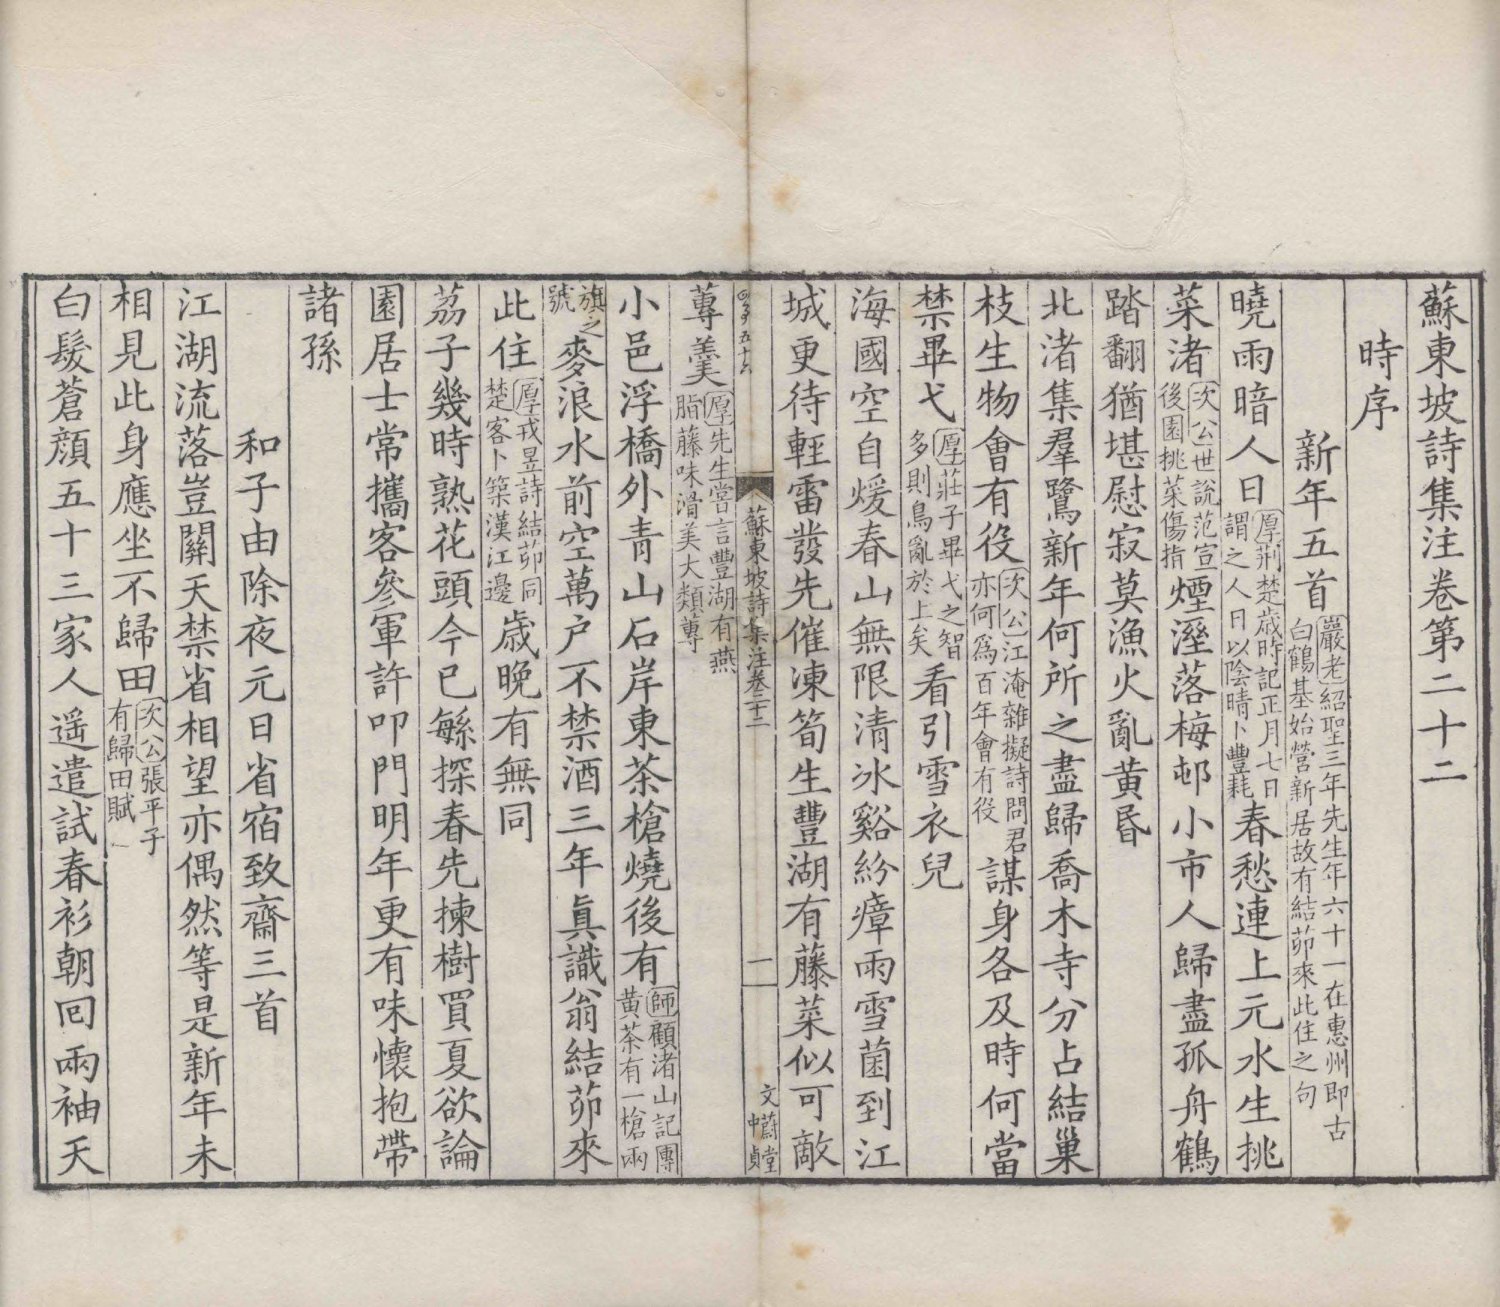 蘇東坡詩集注卷第二十二
時序
新年五首嚴老紹聖三年先生年六十一在惠州即古白鶴基始營新居故有結茆來此住之句
曉雨暗人日厚荆楚歲時記正月七日謂之人日以陰晴卜豐耗春愁連上元水生挑
菜渚次公世說范宣後園挑菜傷指煙溼落梅邨小市人歸盡孤舟鶴
踏翻猶堪慰寂莫漁火亂黃昏
北渚集羣鷺新年何所之盡歸喬木寺分占結巢
枝生物會有役次公江淹雜擬詩問君亦何爲百年會有役謀身各及時何當
禁畢弋厚莊子畢弋之智多則鳥亂於上矣看引雪衣兒
海國空自煖春山無限清冰谿紛瘴雨雪菌到江
城更待輕雷發先催凍筍生豐湖有藤菜似可敵
蘇東坡詩集注卷二十二
一
文蔚堂
中貞
蓴羹厚先生嘗言豐湖有燕脂藤味滑美大類蓴
小邑浮橋外青山石岸東茶槍燒後有師顧渚山記團黃茶有一槍兩
旗之號麥浪水前空萬户不禁酒三年眞識翁結茆來
此住厚戎昱詩結茆同楚客卜築漢江邊歲晚有無同
荔子幾時熟花頭今已緐探春先揀樹買夏欲論
園居士常攜客參軍許叩門明年更有味懷抱帶
諸孫
和子由除夜元日省宿致齋三首
江湖流落豈關天禁省相望亦偶然等是新年未
相見此身應坐不歸田次公張平子有歸田賦
白髮蒼顔五十三家人遥遣試春衫朝回兩袖天